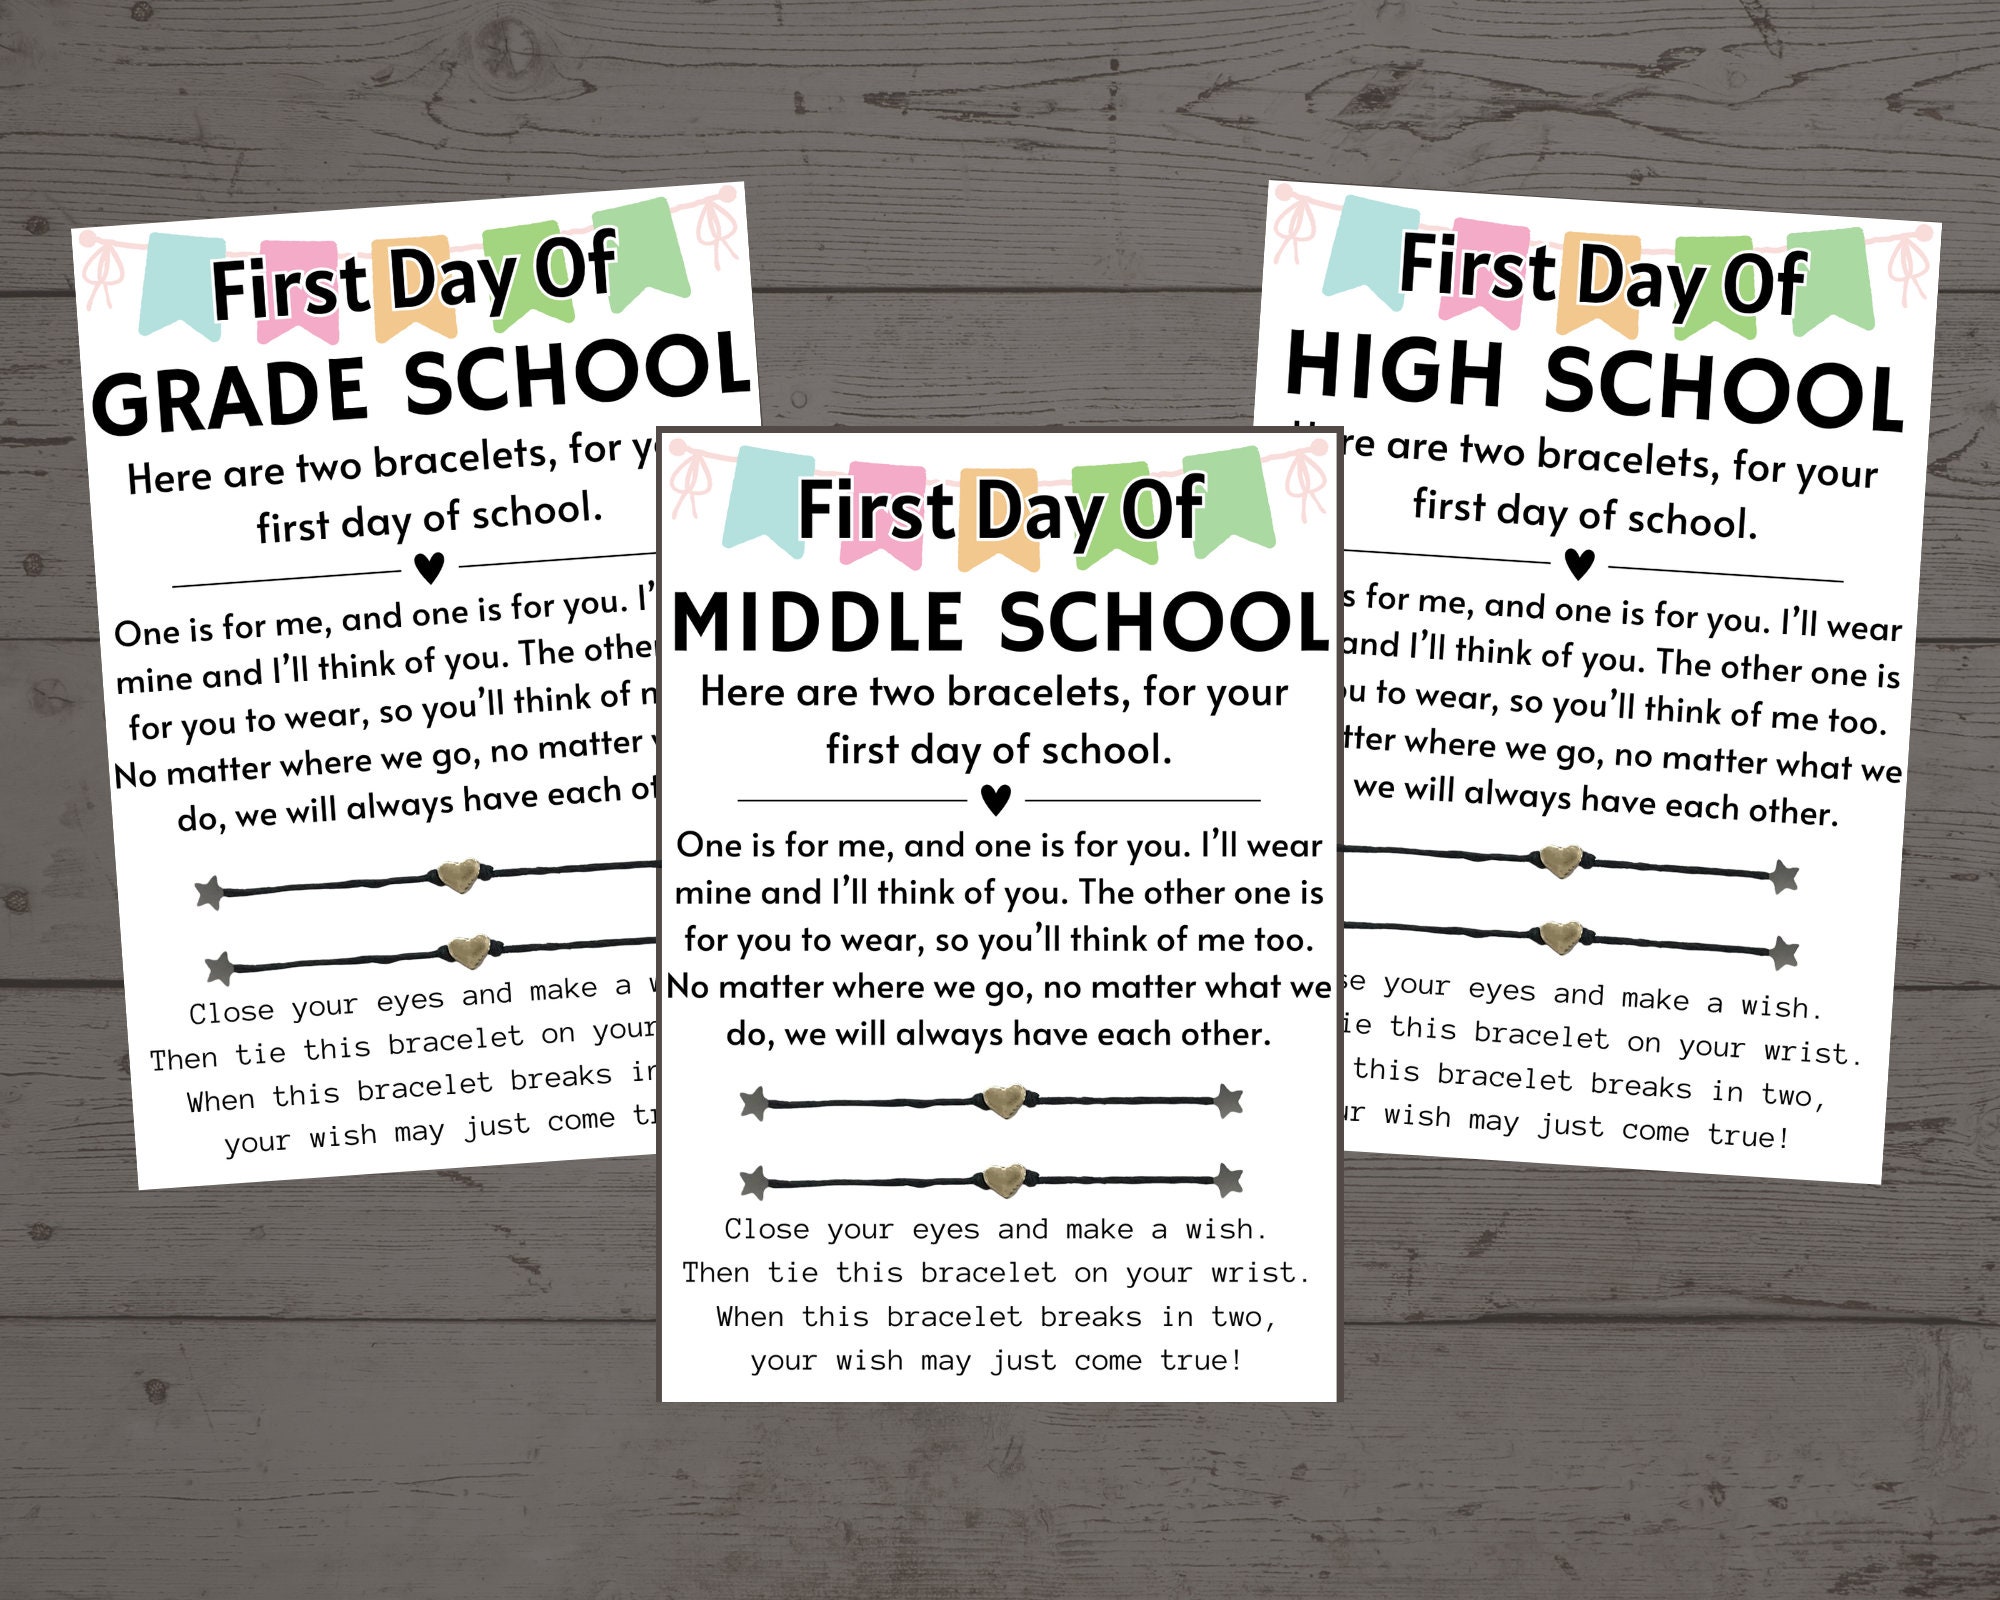 First Day Of
GRADE SCHOOL
Here are two bracelets, for
first day of school.
One is for me, and one is for you.
mine and I'll think of you. The
for you to wear, so you'll think of
No matter where we go, no matter
do, we will always have each
Close your eyes and make a
Then tie this bracelet on your
When this bracelet breaks
your wish may just come
First Day Of
MIDDLE SCHOOL
Here are two bracelets, for your
first day of school.
One is for me, and one is for you. I'll wear
mine and I'll think of you. The other one is
for you to wear, so you'll think of me too.
No matter where we go, no matter what we
do, we will always have each other.
Close your eyes and make a wish.
Then tie this bracelet on your wrist.
When this bracelet breaks in two,
your wish may just come true!
First Day Of
HIGH SCHOOL
are two bracelets, for your
first day of school.
for me, and one is for you. I'll wear
and I'll think of you. The other one is
to wear, so you'll think of me too.
where we go, no matter what we
we will always have each other.
your eyes and make a wish.
this bracelet on your wrist.
this bracelet breaks in two,
wish may just come true!